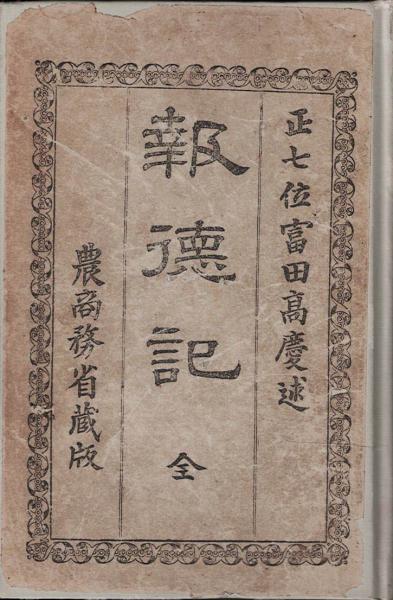 正七位富田高慶述
報德記 全
農商務省蔵版